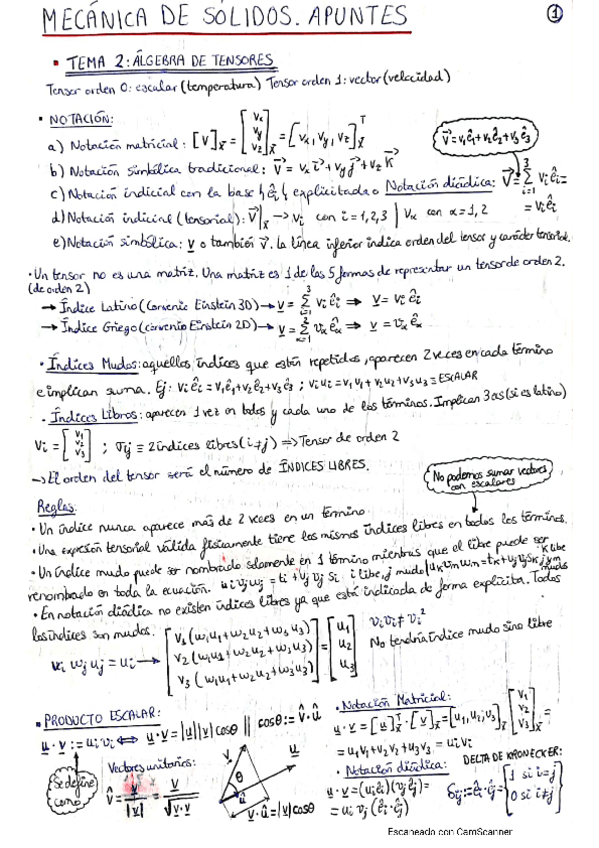 MECÁNICA DE SÓLIDOS. APUNTES
1
▪ TEMA 2: ÁLGEBRA DE TENSORES
Tensor orden 0: escalar (temperatura) Tensor orden 1: vector (velocidad)
• NOTACIÓN:
a) Notación matricial: [V]x̄ = [Vx Vy Vz]x̄ = [Vx, Vy, Vz]x̄^T
V⃗ = v1ê1 + v2ê2 + v3ê3
b) Notación simbólica tradicional: V⃗ = Vx i⃗ + Vy j⃗ + Vz k⃗
c) Notación indicial con la base {êi} explicitada o Notación diádica: V⃗ = Σ(i=1, 3) vi êi =
= vi êi
d) Notación indicial (tensorial): V⃗|x̄ → vi con i = 1,2,3 | Vα con α = 1,2
e) Notación simbólica: v o también v⃗. La línea inferior indica orden del tensor y carácter tensorial.
• Un tensor no es una matriz. Una matriz es 1 de las 5 formas de representar un tensor de orden 2.
(de orden 2)
→ Índice Latino (Convenio Einstein 3D) → v = Σ(i=1, 3) vi êi ⇒ v = vi êi
→ Índice Griego (convenio Einstein 2D) → v = Σ(α=1, 2) vα êα ⇒ v = vα êα
• Índices Mudos: aquellos índices que están repetidos, aparecen 2 veces en cada término
e implican suma. Ej: vi êi = v1ê1 + v2ê2 + v3ê3 ; vi ui = v1u1 + v2u2 + v3u3 ≡ ESCALAR
• Índices Libres: aparecen 1 vez en todos y cada uno de los términos. Implican 3 cas (si es latino)
Vi = [v1 v2 v3] ; σij ≡ 2 índices libres (i≠j) ⇒ Tensor de orden 2
→ El orden del tensor será el número de ÍNDICES LIBRES.
No podemos sumar vectores
con escalares
Reglas:
• Un índice nunca aparece más de 2 veces en un término
• Una expresión tensorial válida físicamente tiene los mismos índices libres en todos los términos.
• Un índice mudo puede ser nombrado solamente en 1 término mientras que el libre puede ser
renombrado en toda la ecuación. ui vj wj = ti + vj vj si i libre, j mudo | uk vm wm = tk + vj vj sk k libre j y m mudos
• En notación diádica no existen índices libres ya que está indicada de forma explícita. Todos
los índices son mudos.
vi wj uj = ui → [v1(w1u1 + w2u2 + w3u3) v2(w1u1 + w2u2 + w3u3) v3(w1u1 + w2u2 + w3u3)] = [u1 u2 u3]
vi vi ≠ vi²
No tendría índice mudo sino libre
▪ PRODUCTO ESCALAR:
u · v := ui vi ⇔ u · v = |u||v| cosθ || cosθ := v̂ · û
Se define
como
Vectores unitarios:
v̂ = v / |v| = v / √(v · v)
v
u
θ
û
v · û = |v| cosθ
• Notación Matricial:
u · v = [u]x̄^T · [v]x̄ = [u1, u2, u3]x̄ [v1 v2 v3]x̄ =
= u1v1 + u2v2 + u3v3 = ui vi
• Notación diádica:
u · v = (ui êi)(vj êj) =
= ui vj (êi · êj)
DELTA DE KRONECKER:
δij := êi · êj = {1 si i=j 0 si i≠j}
Escaneado con CamScanner